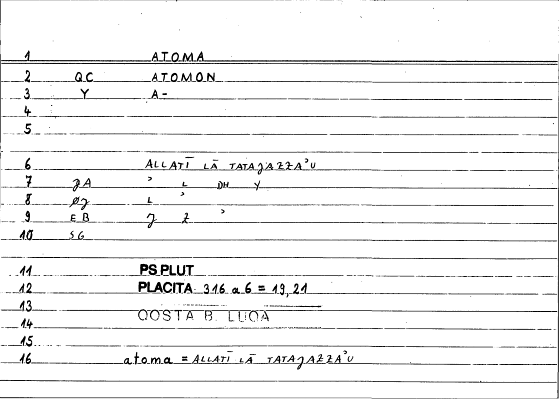 1 ATOMA
2 QC ATOMON
3 Y A-
4
5
6 ALLATĪ LĀ TATAJAZZAʾU
7 JA ʾ L DH Y
8 ØJ L ʾ
9 EB J Z ʾ
10 SG
11 PS PLUT
12 PLACITA 316 a 6 = 19,21
13
14 QOSTA B. LUQA
15
16 atoma = ALLATĪ LĀ TATAJAZZAʾU